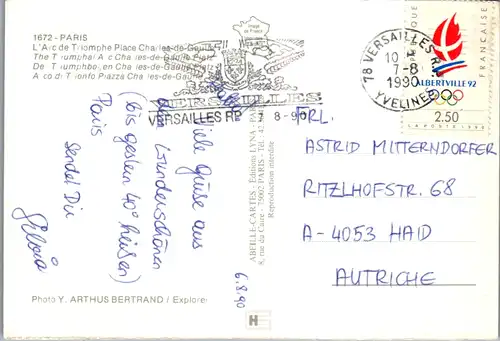 1672 - PARIS
L'Arc de Triomphe Place Charles-de-Gaulle
The Triumphal Arc Charles-de-Gaulle Platz
De Triumphbogen Charles-de-Gaulle Platz
Arco di Trionfo Piazza Charles-de-Gaulle
VERSAILLES
VERSAILLES RP 7 8-90
78 VERSAILLES R.P.
10 H
7-8
1990
YVELINES
RÉPUBLIQUE
FRANÇAISE
ALBERTVILLE 92
2.50
LA POSTE 1990
Viele Grüße aus
dem wunderschönen
(bis gestern 40° heißen)
Paris
sendet Dir
Silvia
6.8.90
ABEILLE-CARTES - Éditions LYNA-PARIS
8, rue du Caire - 75002 PARIS - Tél. 42
Reproduction interdite
FRL.
ASTRID MITTERNDORFER
RITZLHOFSTR. 68
A-4053 HAID
AUTRICHE
Photo Y. ARTHUS BERTRAND / Explorer